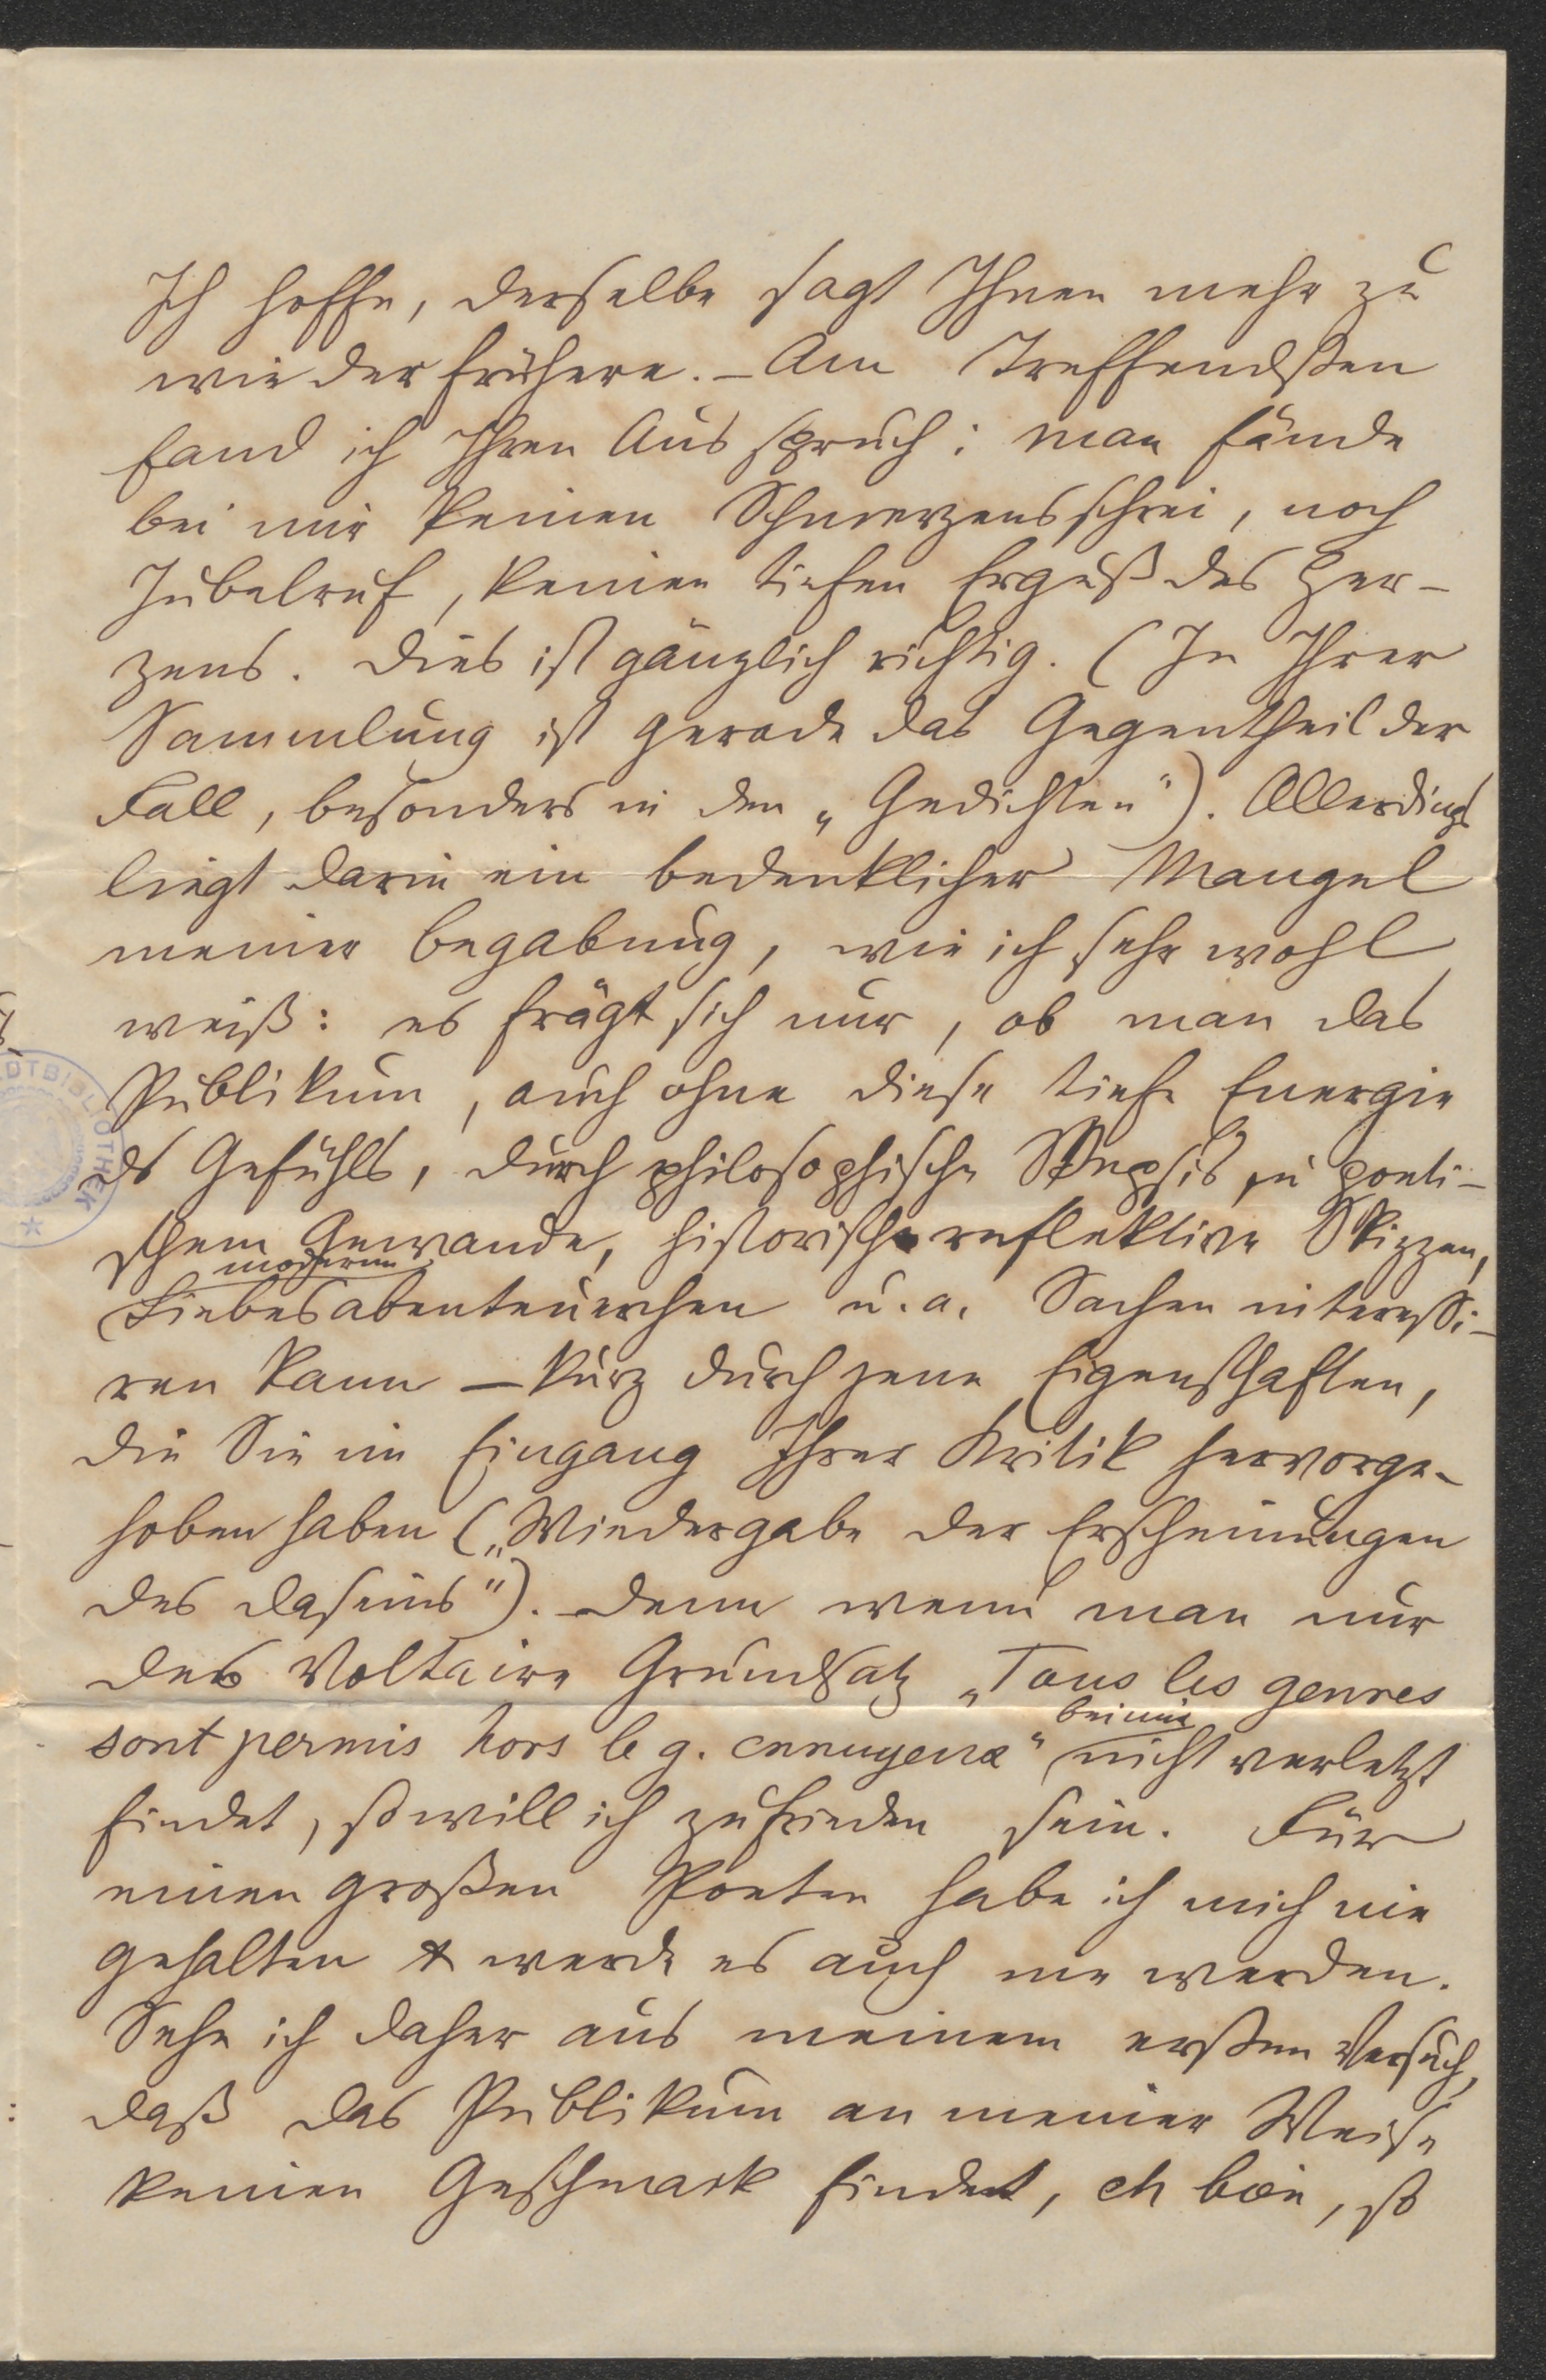 Ich hoffe, derselbe sagt Ihnen mehr zu
wie der frühere. – Am Treffendsten
fand ich Ihren Ausspruch: man fände
bei mir keinen Schmerzensschrei, noch
Jubelruf, keinen tiefen Erguß des Her-
zens. Dies ist gänzlich richtig. (In Ihrer
Sammlung ist gerade das Gegentheil der
Fall, besonders in den „Gedichten"). Allerdings
liegt darin ein bedenklicher Mangel
meiner Begabung, wie ich sehr wohl
weiß: es frägt sich nur, ob man das
Publikum, auch ohne diese tiefe Energie
DTBIBLIOTHEK
ds Gefühls, durch philosophische Skepsis in poeti-
schem Gewande, historische reflektive Skizzen,
moderne
Liebesabenteuerchen u. a. Sachen interessi-
ren kann – kurz durch jene Eigenschaften,
die Sie im Eingang Ihrer Kritik hervorge-
hoben haben („Wiedergabe der Erscheinungen
des Daseins"). – Denn wenn man nur
den Voltaire Grundsatz „Tous les genres
bei mir
sont permis hors le g. ennuyeux" nicht verletzt
findet, so will ich zufrieden sein. Für
einen großen Poeten habe ich mich nie
gehalten & werde es auch nie werden.
Sehe ich daher aus meinem ersten Versuch,
daß das Publikum an meiner Weise
keinen Geschmack findet, eh bien, so